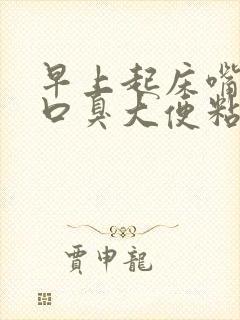 早上起床嘴
口臭大便粘
賈申龍